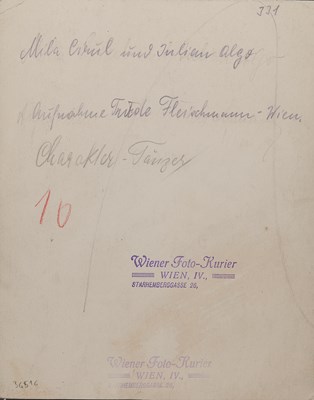 331
Mila Cirul und Julian Algo
Aufnahme Trude Fleischmann - Wien.
Charakter-Tänzer
10
Wiener Foto-Kurier
WIEN, IV.,
STARHEMBERGGASSE 26,
Wiener Foto-Kurier
WIEN, IV.,
STARHEMBERGGASSE 26,